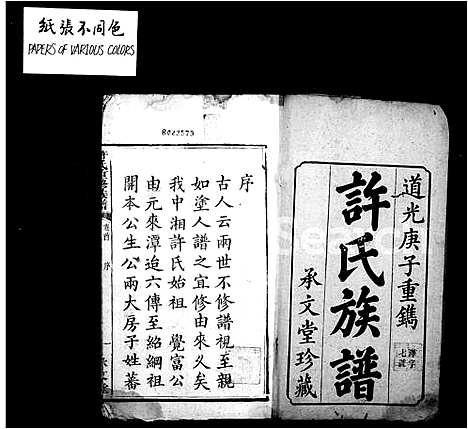 紙張不同色
PAPERS OF VARIOUS COLORS
道光庚子重鐫
許氏族譜
承文堂珍藏
序
古人云兩世不修譜視至親
如塗人譜之宜修由來久矣
我中湘許氏始祖 覺富公
由元來潭迨六傳至紹綱祖
開本公生公兩大房子姓蕃